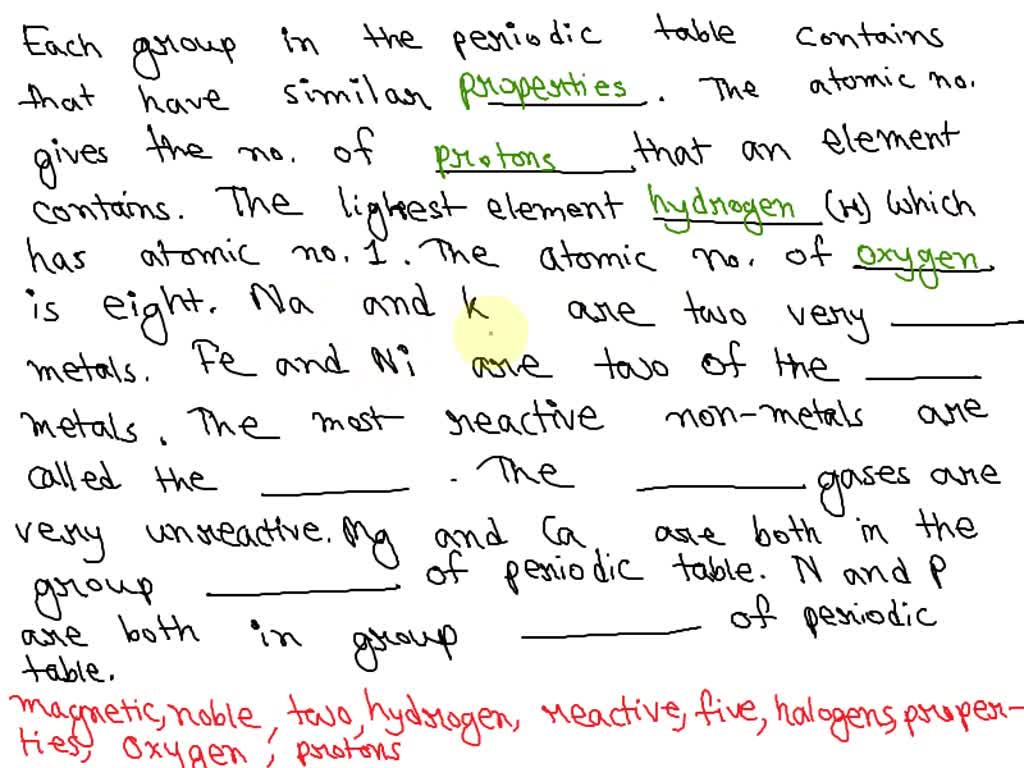 Each group in the periodic table contains
that have similar properties. The atomic no.
gives the no. of protons that an element
contains. The lightest element hydrogen (H) which
has atomic no. 1. The atomic no. of oxygen
is eight. Na and K are two very ______
metals. Fe and Ni are two of the ______
metals. The most reactive non-metals are
called the ______. The ______ gases are
very unreactive. Mg and Ca are both in the
group ______ of periodic table. N and P
are both in group ______ of periodic
table.
magnetic, noble, two, hydrogen, reactive, five, halogens, proper-
ties, oxygen, protons